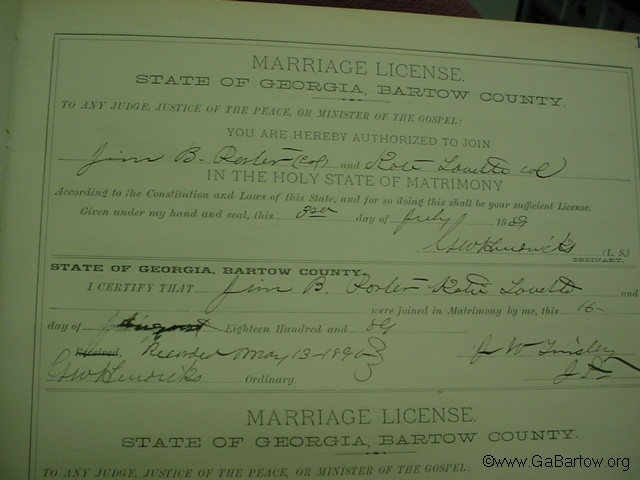 MARRIAGE LICENSE.
STATE OF GEORGIA, BARTOW COUNTY.
TO ANY JUDGE, JUSTICE OF THE PEACE, OR MINISTER OF THE GOSPEL:
YOU ARE HEREBY AUTHORIZED TO JOIN
Jim B. Porter (col) and Kate Lovette col
IN THE HOLY STATE OF MATRIMONY
According to the Constitution and Laws of this State, and for so doing this shall be your sufficient License.
Given under my hand and seal, this day of July 1889
G W Hendricks (L. S.)
ORDINARY.
STATE OF GEORGIA, BARTOW COUNTY.
I CERTIFY THAT Jim B. Porter Katie Lovette and
were joined in Matrimony by me, this 16
day of August Eighteen Hundred and 89
Received, Recorded May 13 1890 J W Tinsley
G W Hendricks Ordinary. J P
MARRIAGE LICENSE.
STATE OF GEORGIA, BARTOW COUNTY.
TO ANY JUDGE, JUSTICE OF THE PEACE, OR MINISTER OF THE GOSPEL:
©www.GaBartow.org